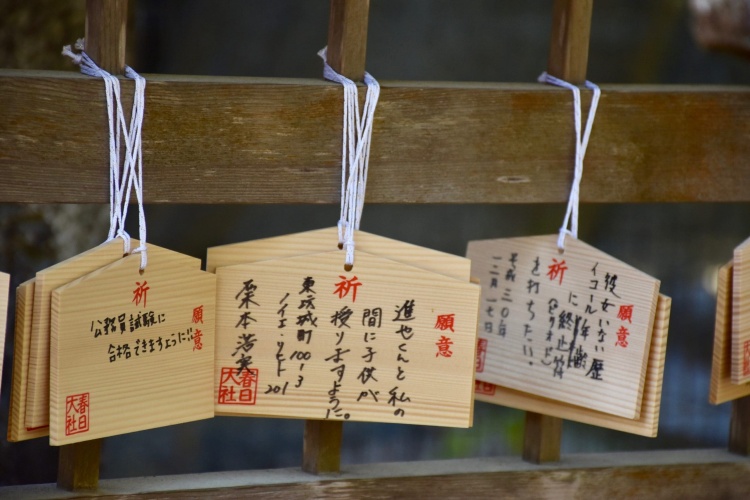 祈
願意
公務員試験に
合格できますように!!
春日
大社
祈
願意
進也くんと私の
間に子供が
授りますように。
東城戸町100-3
201
栗本
春日
大社
祈
願意
彼女いない歴
イコール年齢
に終止符
(ピリオド)
を打ちたい!
平成三〇年
一二月一七日